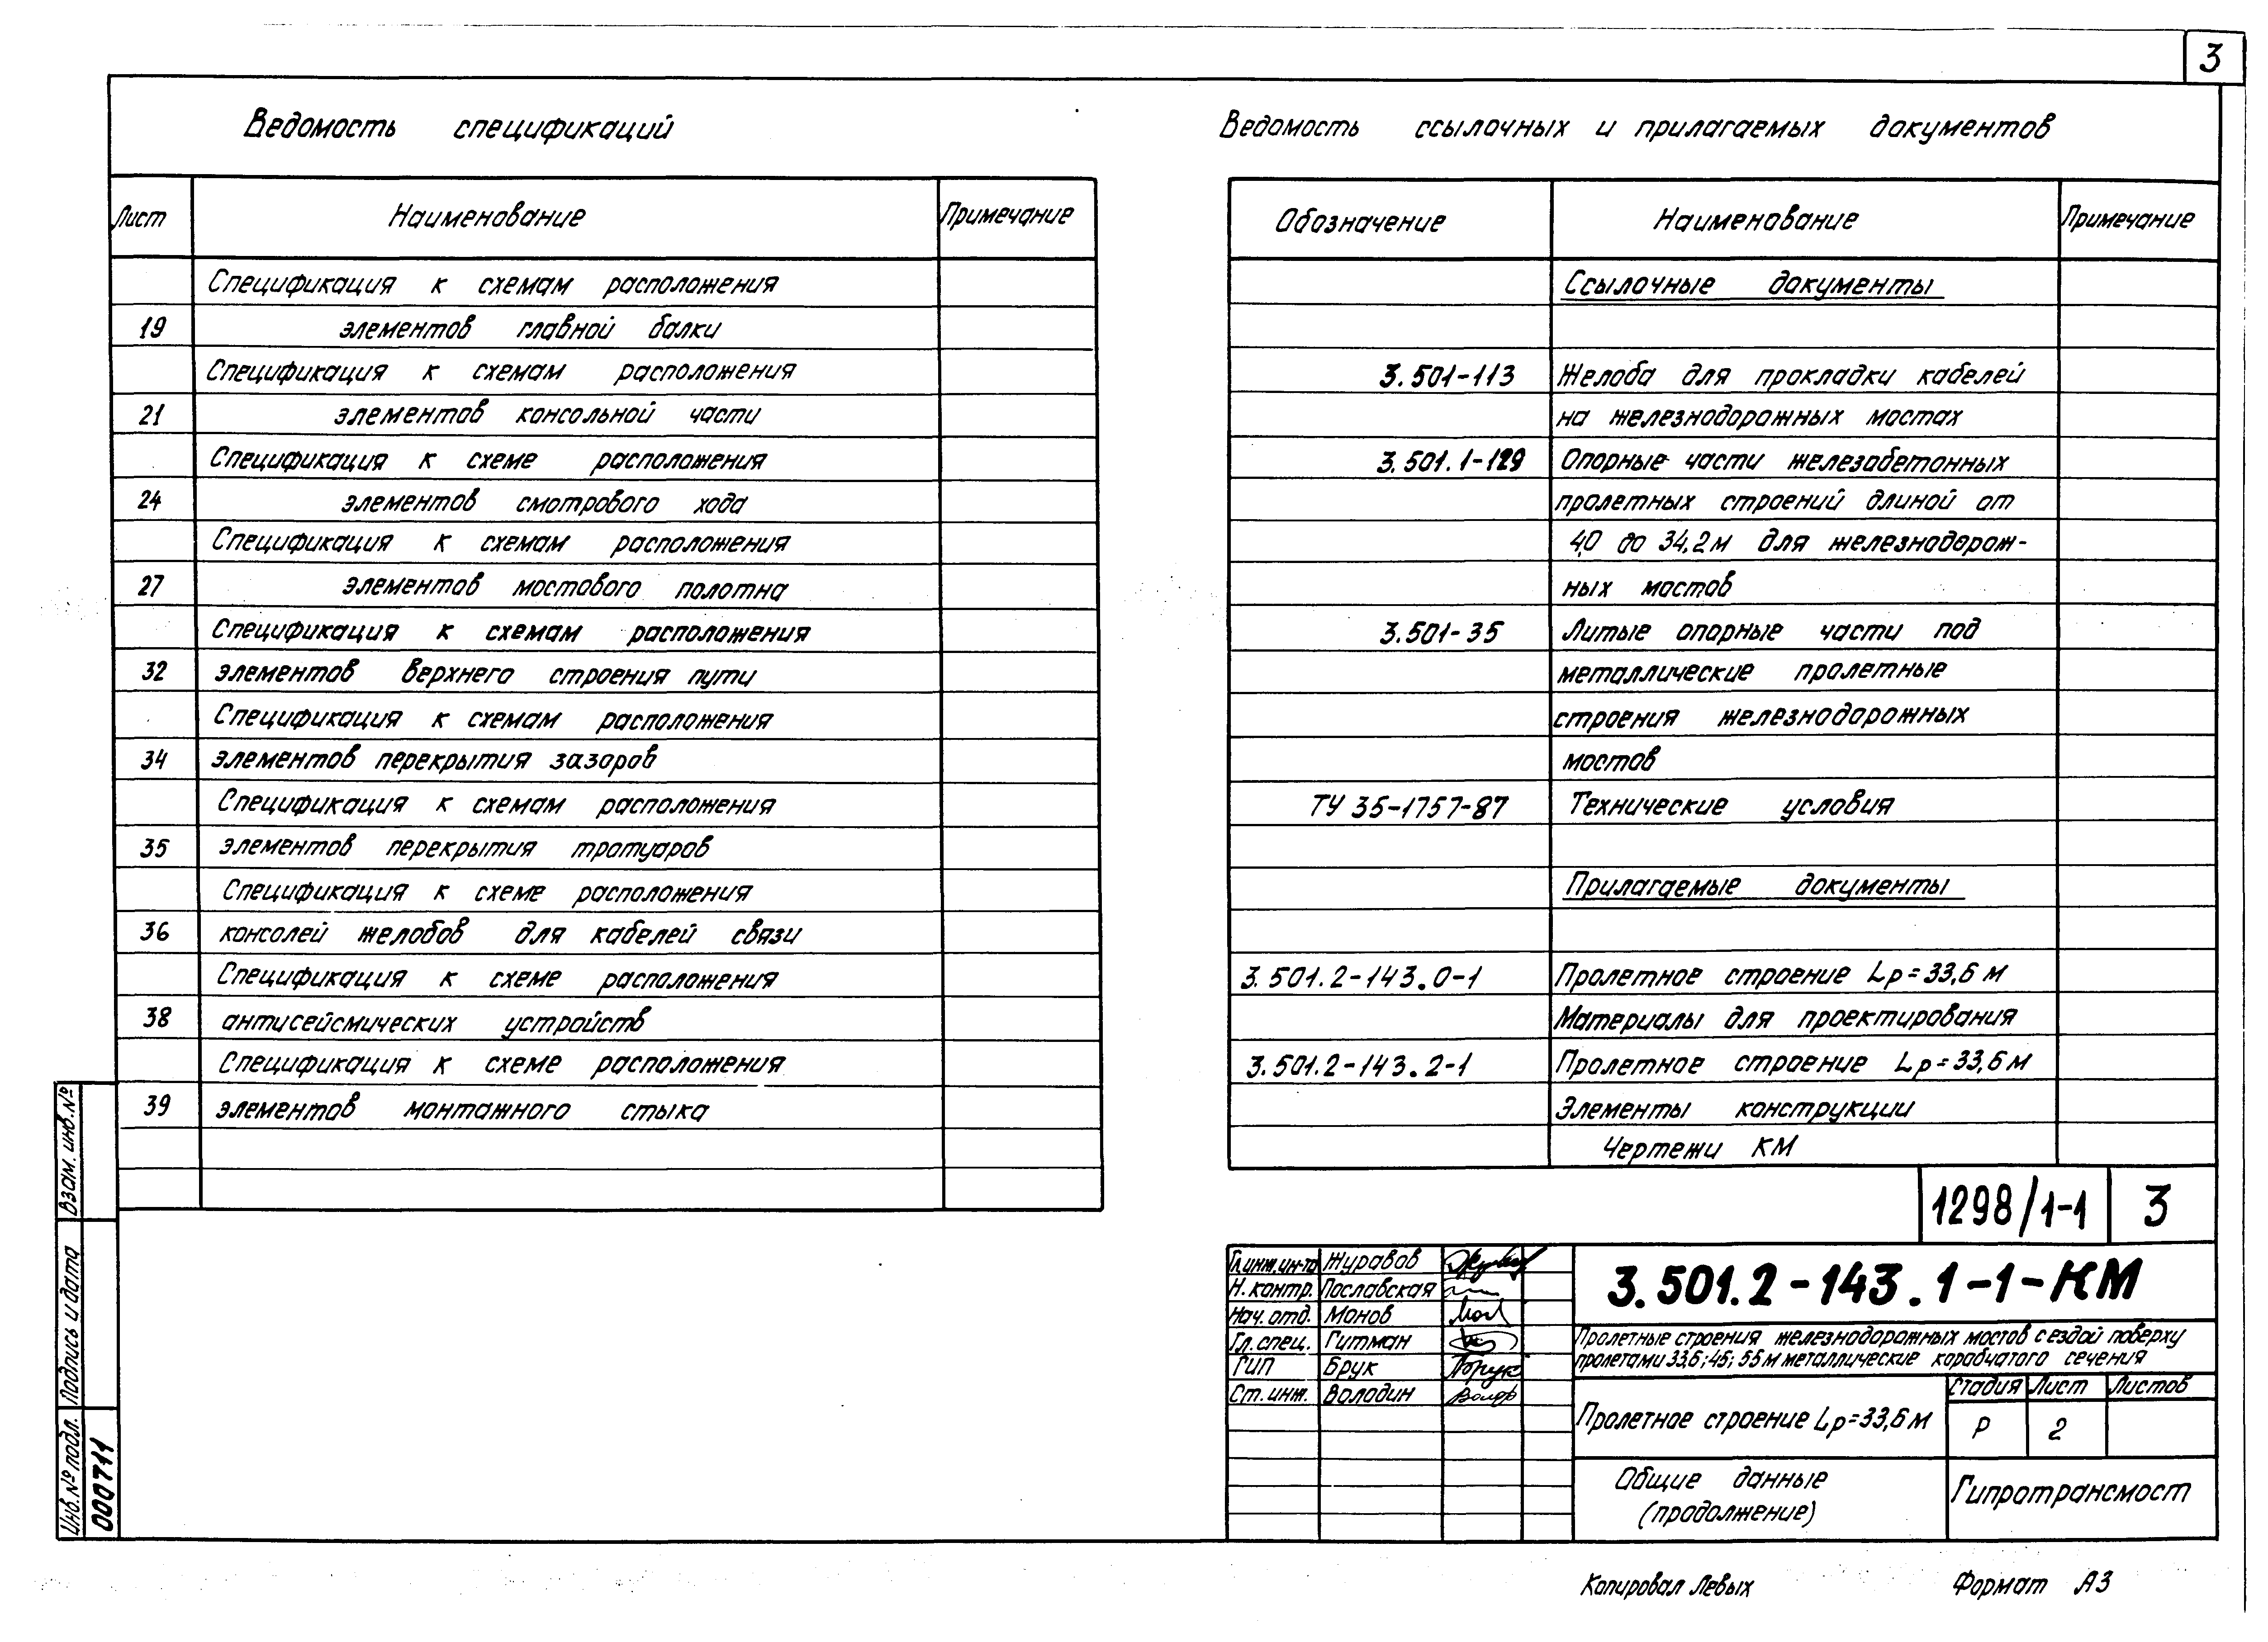 3
Ведомость спецификаций
Лист Наименование Примечание
Спецификация к схемам расположения
19 элементов главной балки
Спецификация к схемам расположения
21 элементов консольной части
Спецификация к схеме расположения
24 элементов смотрового хода
Спецификация к схемам расположения
27 элементов мостового полотна
Спецификация к схемам расположения
32 элементов верхнего строения пути
Спецификация к схемам расположения
34 элементов перекрытия зазоров
Спецификация к схемам расположения
35 элементов перекрытия тротуаров
Спецификация к схеме расположения
36 консолей желобов для кабелей связи
Спецификация к схеме расположения
38 антисейсмических устройств
Спецификация к схеме расположения
39 элементов монтажного стыка
Ведомость ссылочных и прилагаемых документов
Обозначение Наименование Примечание
Ссылочные документы
3.501-113 Желоба для прокладки кабелей
на железнодорожных мостах
3.501.1-129 Опорные части железабетонных
пролетных строений длиной от
4,0 до 34,2м для железнодорож-
ных мостов
3.501-35 Литые опорные части под
металлические пролетные
строения железнодорожных
мостов
ТУ 35-1757-87 Технические условия
Прилагаемые документы
3.501.2-143.0-1 Пролетное строение Lр=33,6 м
Материалы для проектирования
3.501.2-143.2-1 Пролетное строение Lр=33,6 м
Элементы конструкции
Чертежи КМ
1298/1-1 3
Гл.инж.ин-та Журавов
Н.контр. Пославская
Нач.отд. Монов
Гл.спец. Гитман
ГИП Брук
Ст.инж. Володин
3.501.2-143.1-1-КМ
Пролетные строения железнодорожных мостов с ездой поверху
пролетами 33,6; 45; 55 м металлические коробчатого сечения
Пролетное строение Lр=33,6 м
Стадия Лист Листов
Р 2
Общие данные
(продолжение)
Гипротрансмост
Взам. инв.№
Подпись и дата
Инв.№ подл.
000711
Копировал Левых Формат А3